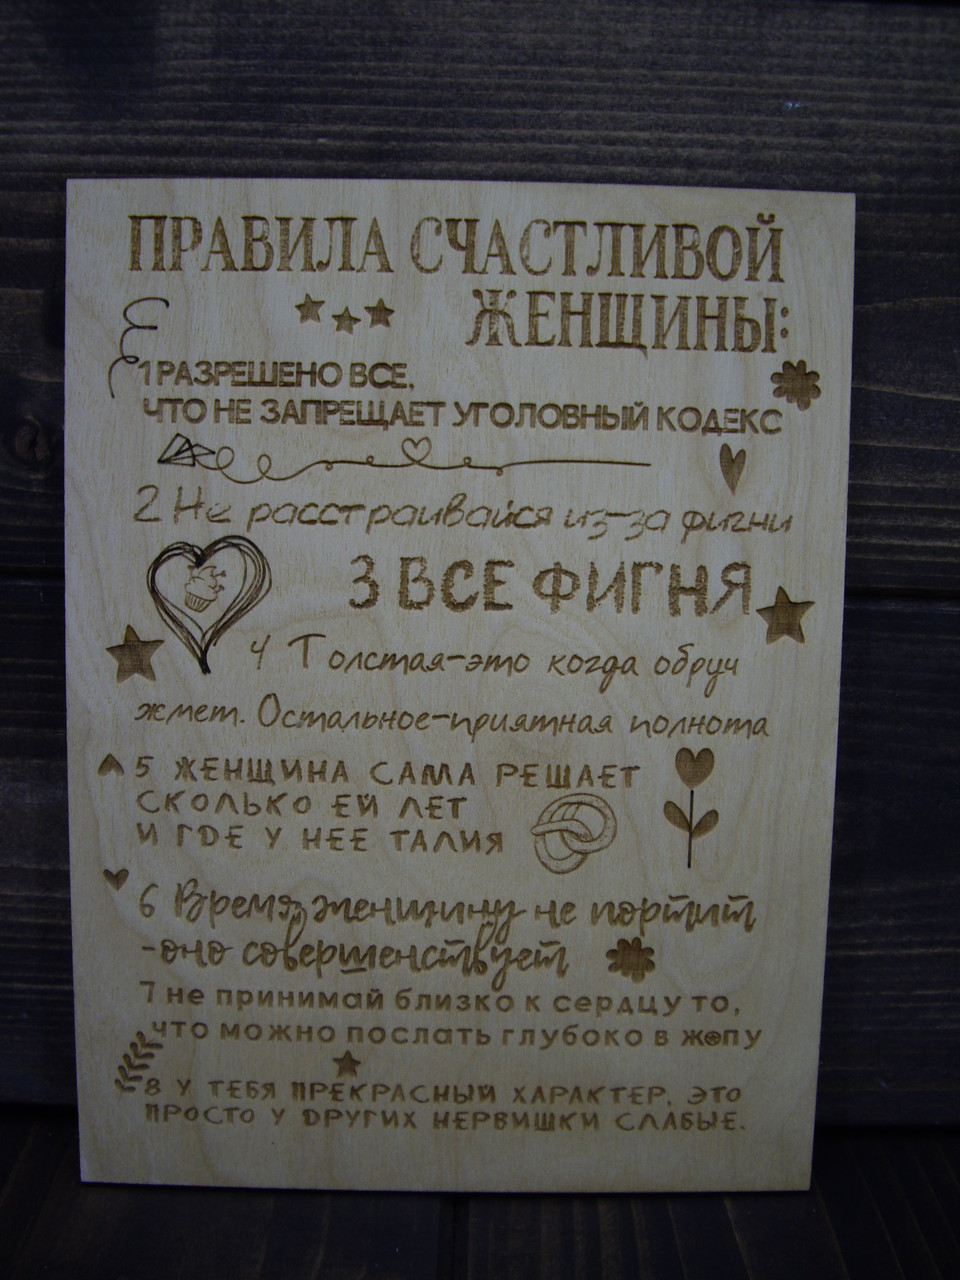 ПРАВИЛА СЧАСТЛИВОЙ
ЖЕНЩИНЫ:
1 РАЗРЕШЕНО ВСЕ,
ЧТО НЕ ЗАПРЕЩАЕТ УГОЛОВНЫЙ КОДЕКС
2 Не расстраивайся из-за фигни
3 ВСЕ ФИГНЯ
4 Толстая-это когда обруч
жмет. Остальное-приятная полнота
5 ЖЕНЩИНА САМА РЕШАЕТ
СКОЛЬКО ЕЙ ЛЕТ
И ГДЕ У НЕЕ ТАЛИЯ
6 Время женщину не портит
-оно совершенствует
7 не принимай близко к сердцу то,
что можно послать глубоко в жопу
8 У ТЕБЯ ПРЕКРАСНЫЙ ХАРАКТЕР, ЭТО
ПРОСТО У ДРУГИХ НЕРВИШКИ СЛАБЫЕ.